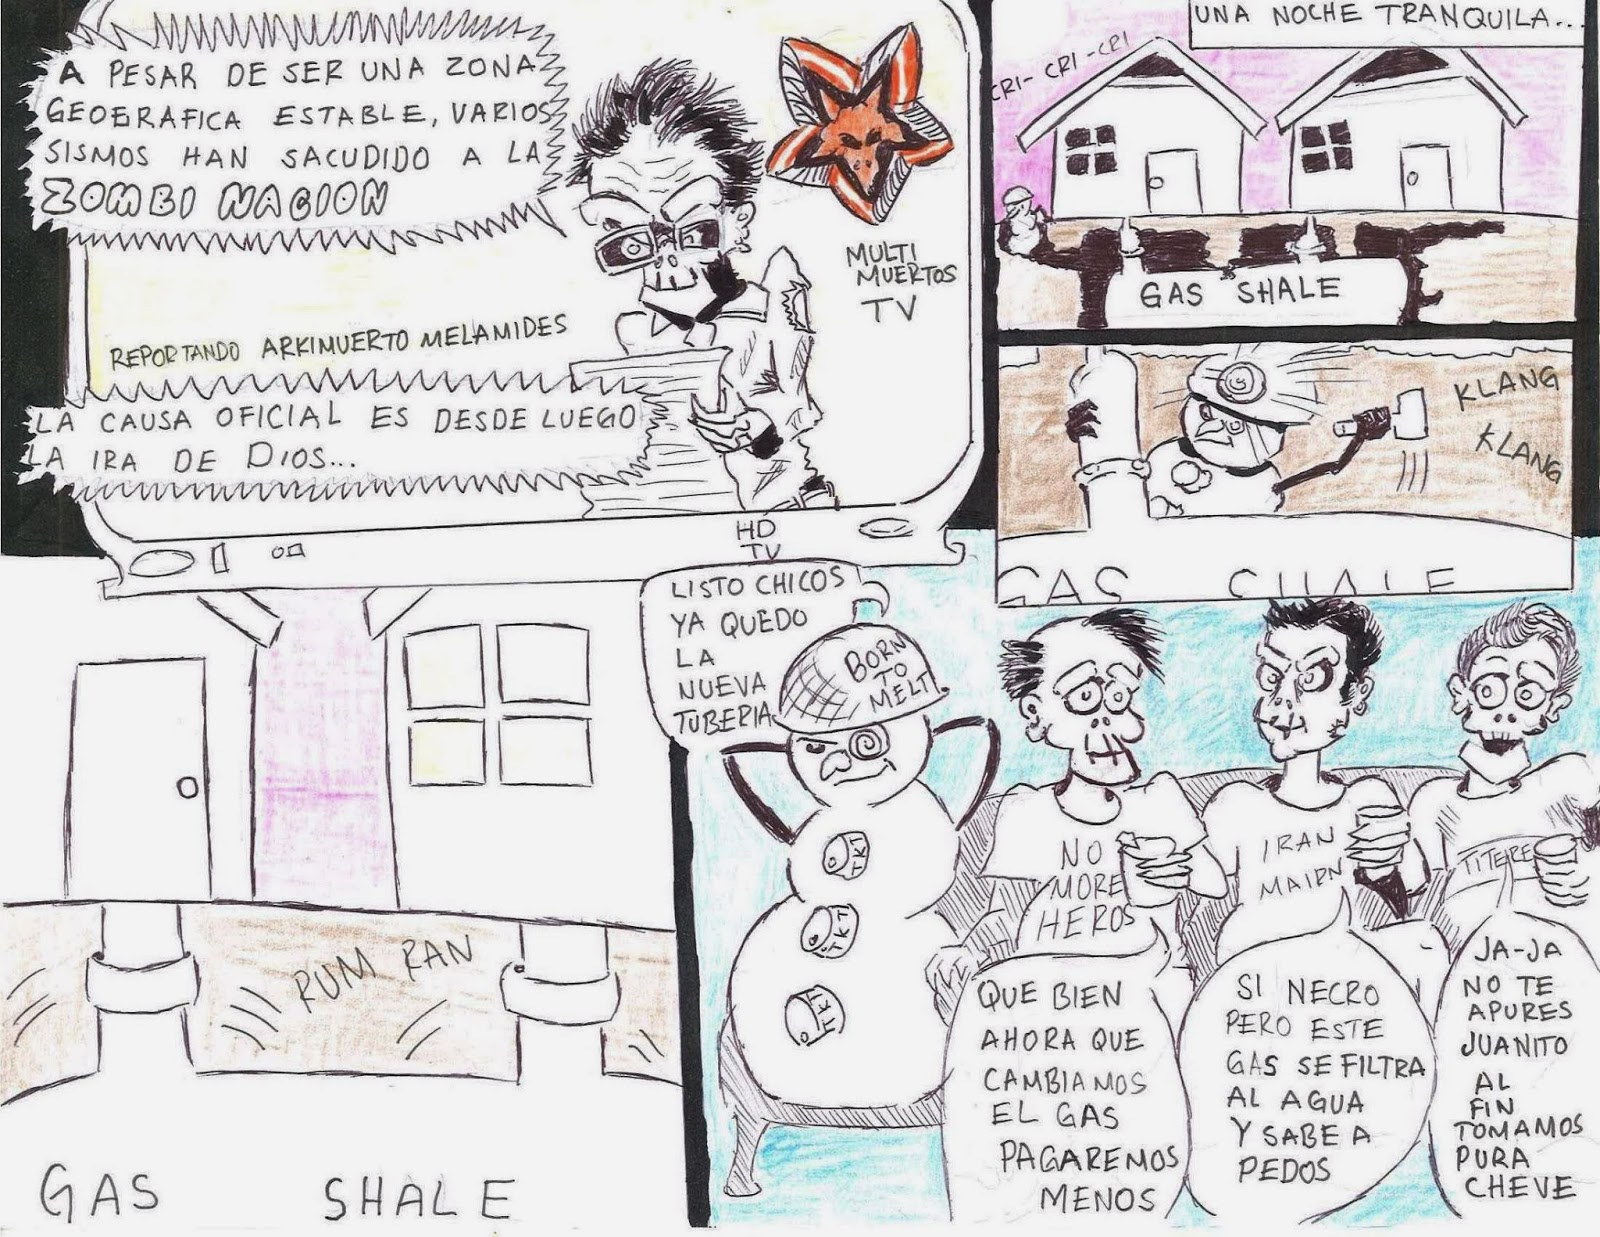 A PESAR DE SER UNA ZONA
GEOGRAFICA ESTABLE, VARIOS
SISMOS HAN SACUDIDO A LA
ZOMBI NACION
MULTI
MUERTOS
TV
REPORTANDO ARKIMUERTO MELAMIDES
LA CAUSA OFICIAL ES DESDE LUEGO
LA IRA DE DIOS...
HD
TV
UNA NOCHE TRANQUILA...
CRI- CRI -CRI
GAS SHALE
KLANG
KLANG
GAS SHALE
RUM RAN
GAS SHALE
LISTO CHICOS
YA QUEDO
LA
NUEVA
TUBERIA
BORN
TO
MELT
TKT
TKT
TKT
NO
MORE
HEROS
IRAN
MAIRN
TITERE
QUE BIEN
AHORA QUE
CAMBIAMOS
EL GAS
PAGAREMOS
MENOS
SI NECRO
PERO ESTE
GAS SE FILTRA
AL AGUA
Y SABE A
PEDOS
JA-JA
NO TE
APURES
JUANITO
AL
FIN
TOMAMOS
PURA
CHEVE